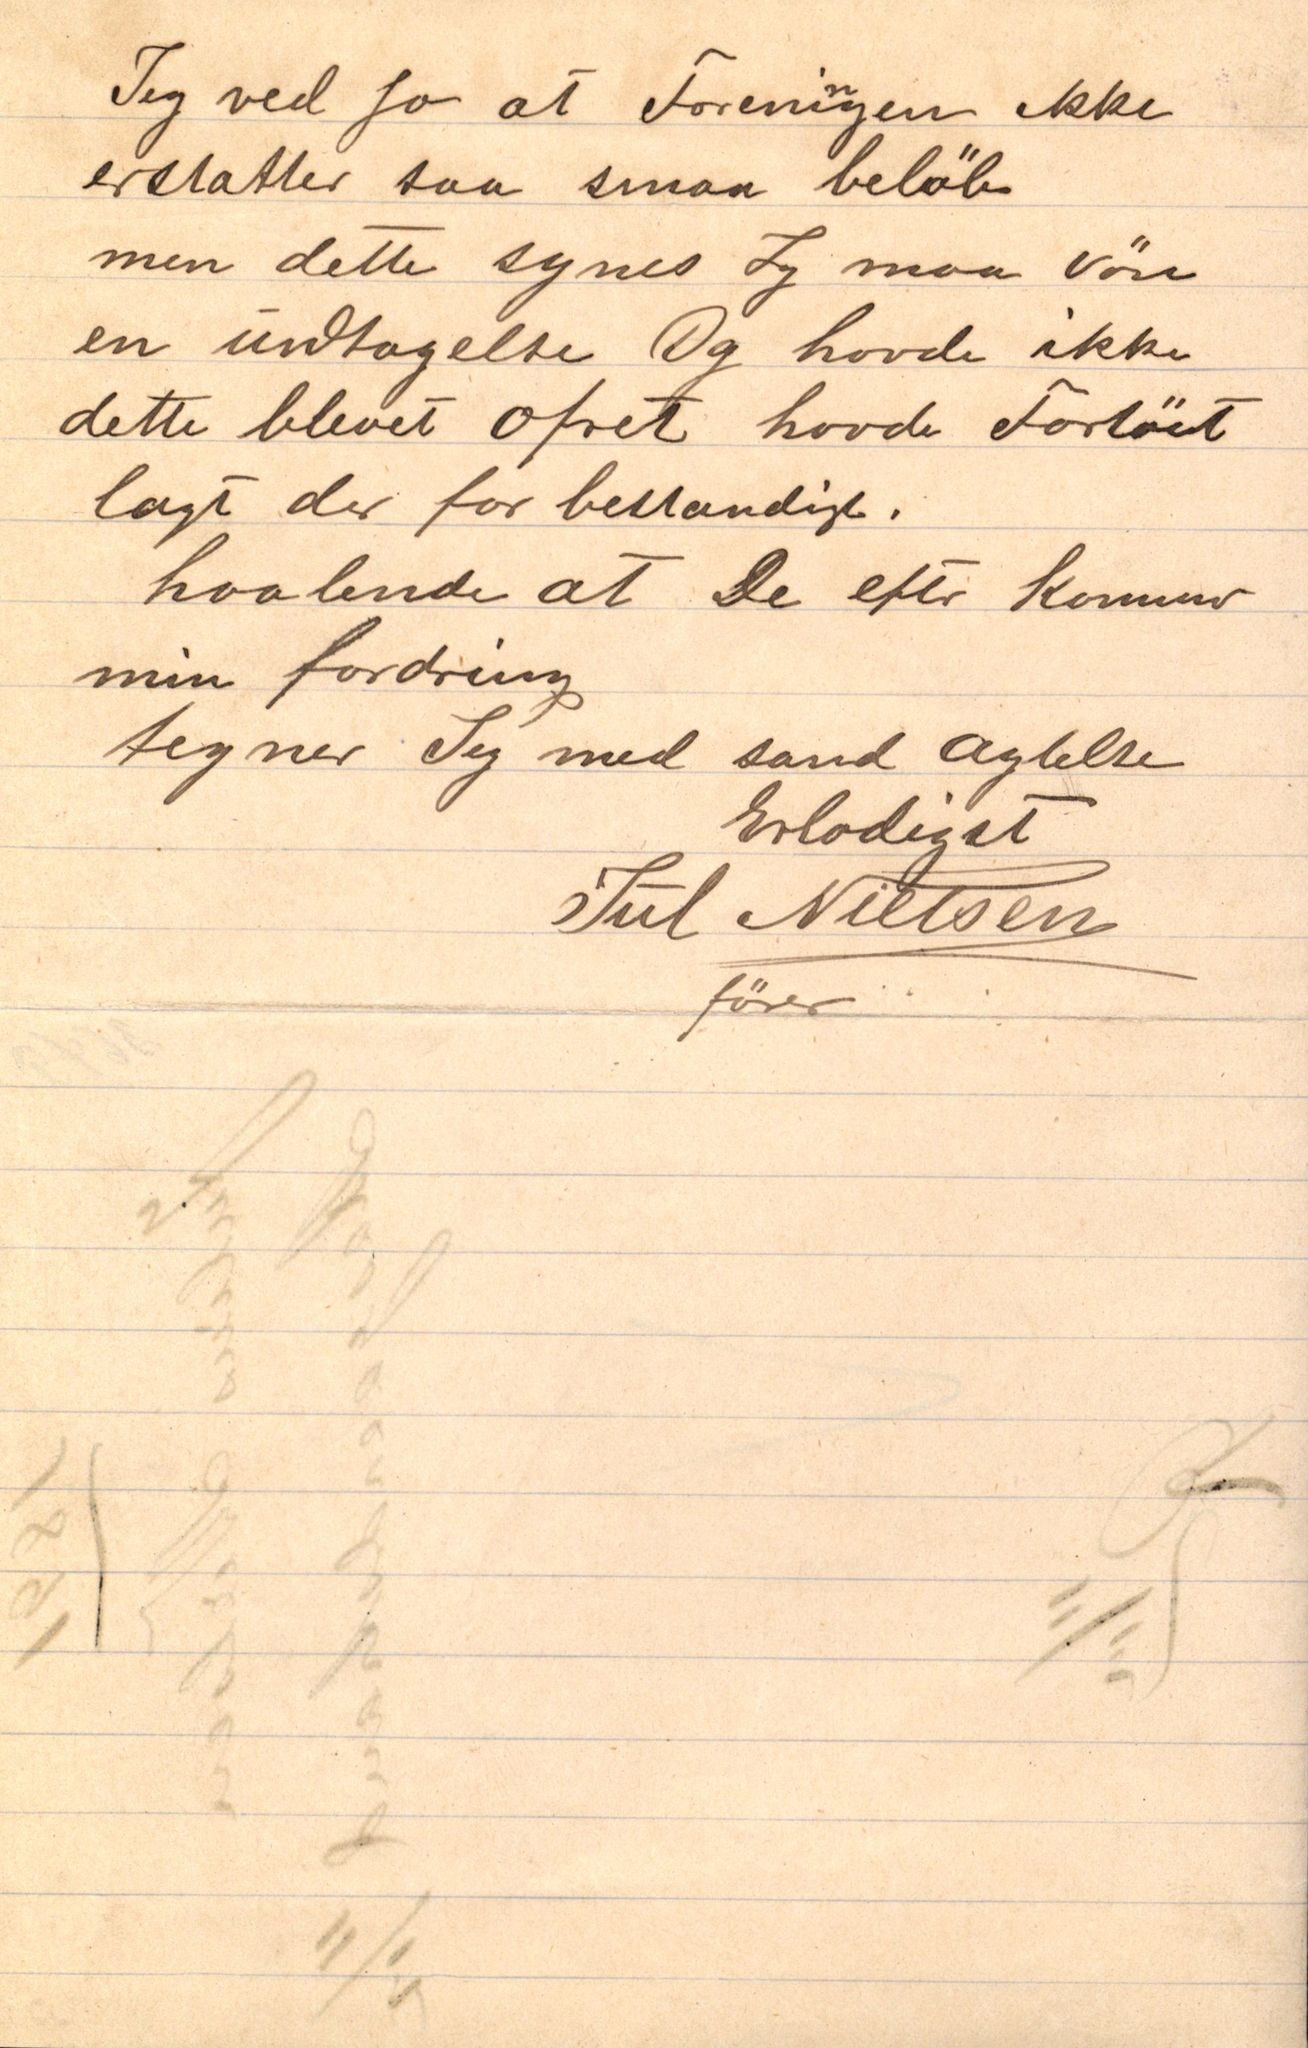 Jeg ved jo at Foreningen ikke
erstatter saa smaa belöb
men dette synes Jg maa vöre
en undtagelse Og havde ikke
dette blevet ofret havde Fartöiet
lagt der for bestandigt.
haabende at De efter kommer
min fordring
tegner Jeg med sand agtelse
Erbödigst
Jul Nielsen
förer